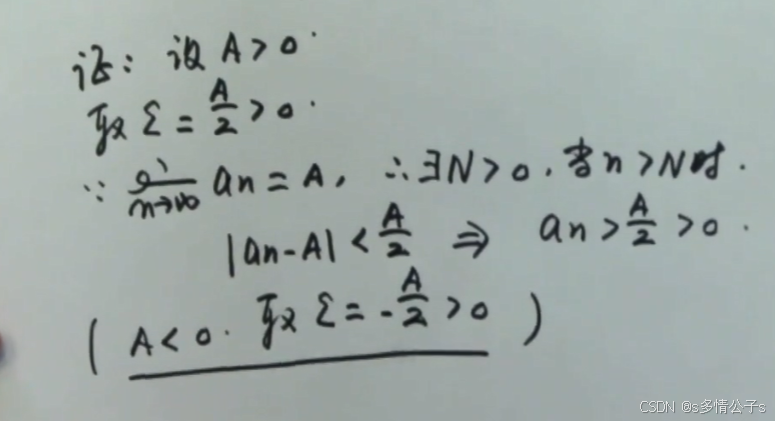 证：设 A>0.
取 ε = A/2 > 0.
∵ lim n→∞ an = A, ∴ ∃N>0. 当 n>N 时.
|an-A| < A/2 ⇒ an > A/2 > 0.
( A<0. 取 ε = -A/2 > 0 )
CSDN @s多情公子s